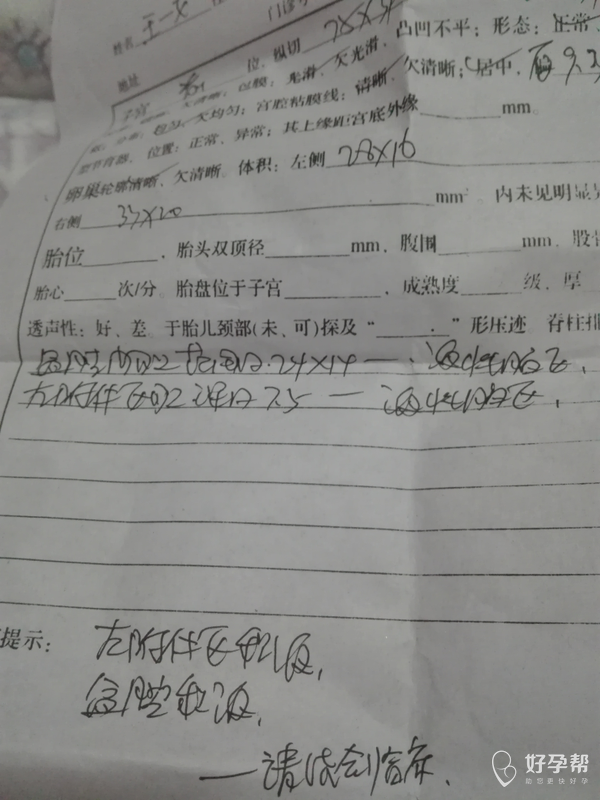 姓名
地址
子宫 位,纵切 凸凹不平;形态:正常、
包膜:光滑、欠光滑, 居中,
均匀、欠均匀;宫腔粘膜线:清晰、欠清晰;
位置:正常、异常;其上缘距宫底外缘 mm。
卵巢轮廓清晰、欠清晰。体积:左侧 28×16
右侧 37×20 mm² 内未见明显
胎位 ,胎头双顶径 mm,腹围 mm,股
胎心 次/分。胎盘位于子宫 ,成熟度 级、厚
透声性:好、差。于胎儿颈部(未、可)探及“ ”形压迹。脊柱排
盆腔内可见范围约24×14一液性暗区,
左附件区可见 一液性暗区,
提示:
左附件区积液,
盆腔积液,
一请结合临床.
好孕帮
助您更快好孕